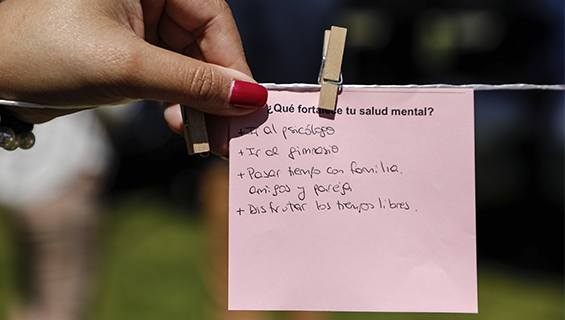 ¿Qué fortalece tu salud mental?
+ Ir al psicólogo
+ Ir al gimnasio
+ Pasar tiempo con familia,
amigos y pareja
+ Disfrutar los tiempos libres.